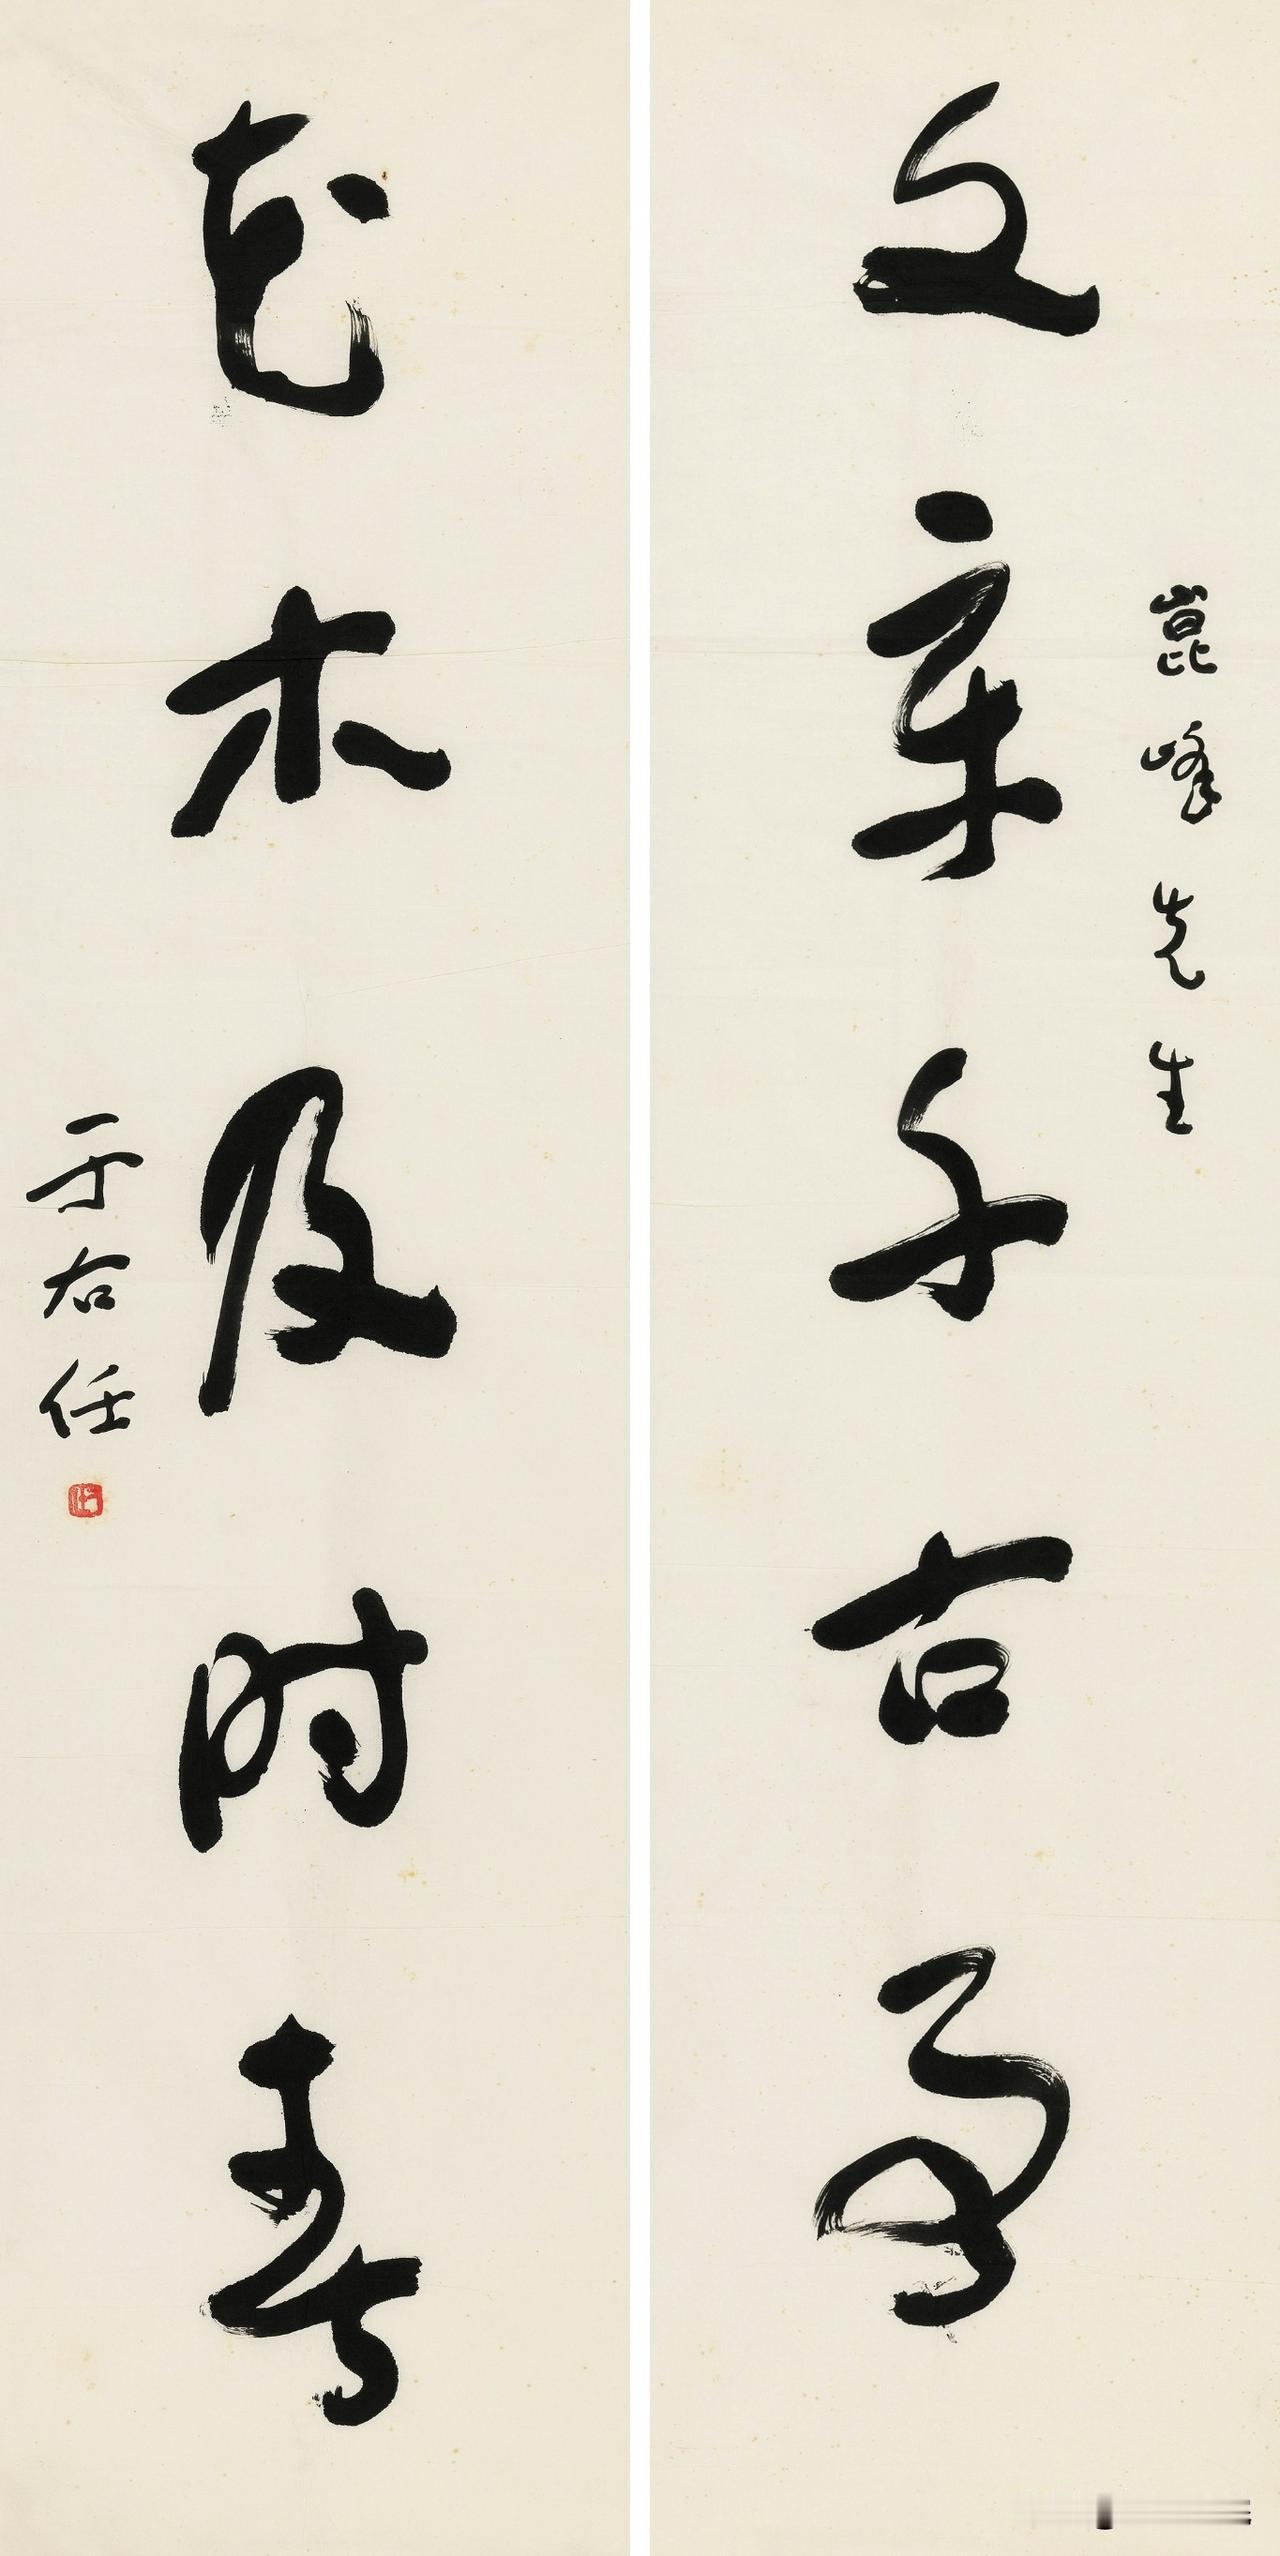 崑峰先生
文章千古事
花木及时春
于右任